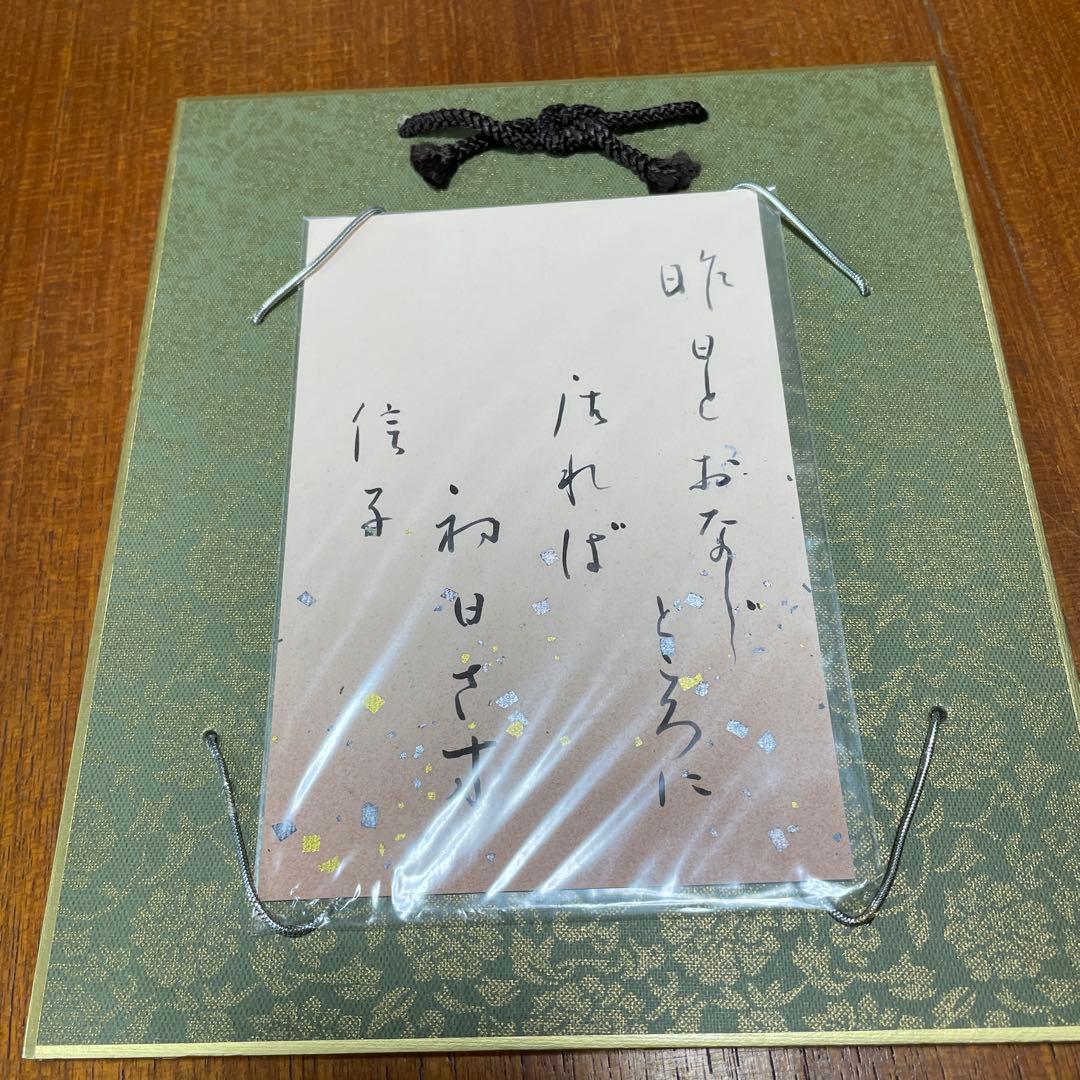 昨日とおなじところに
居れば
初日さす
信子